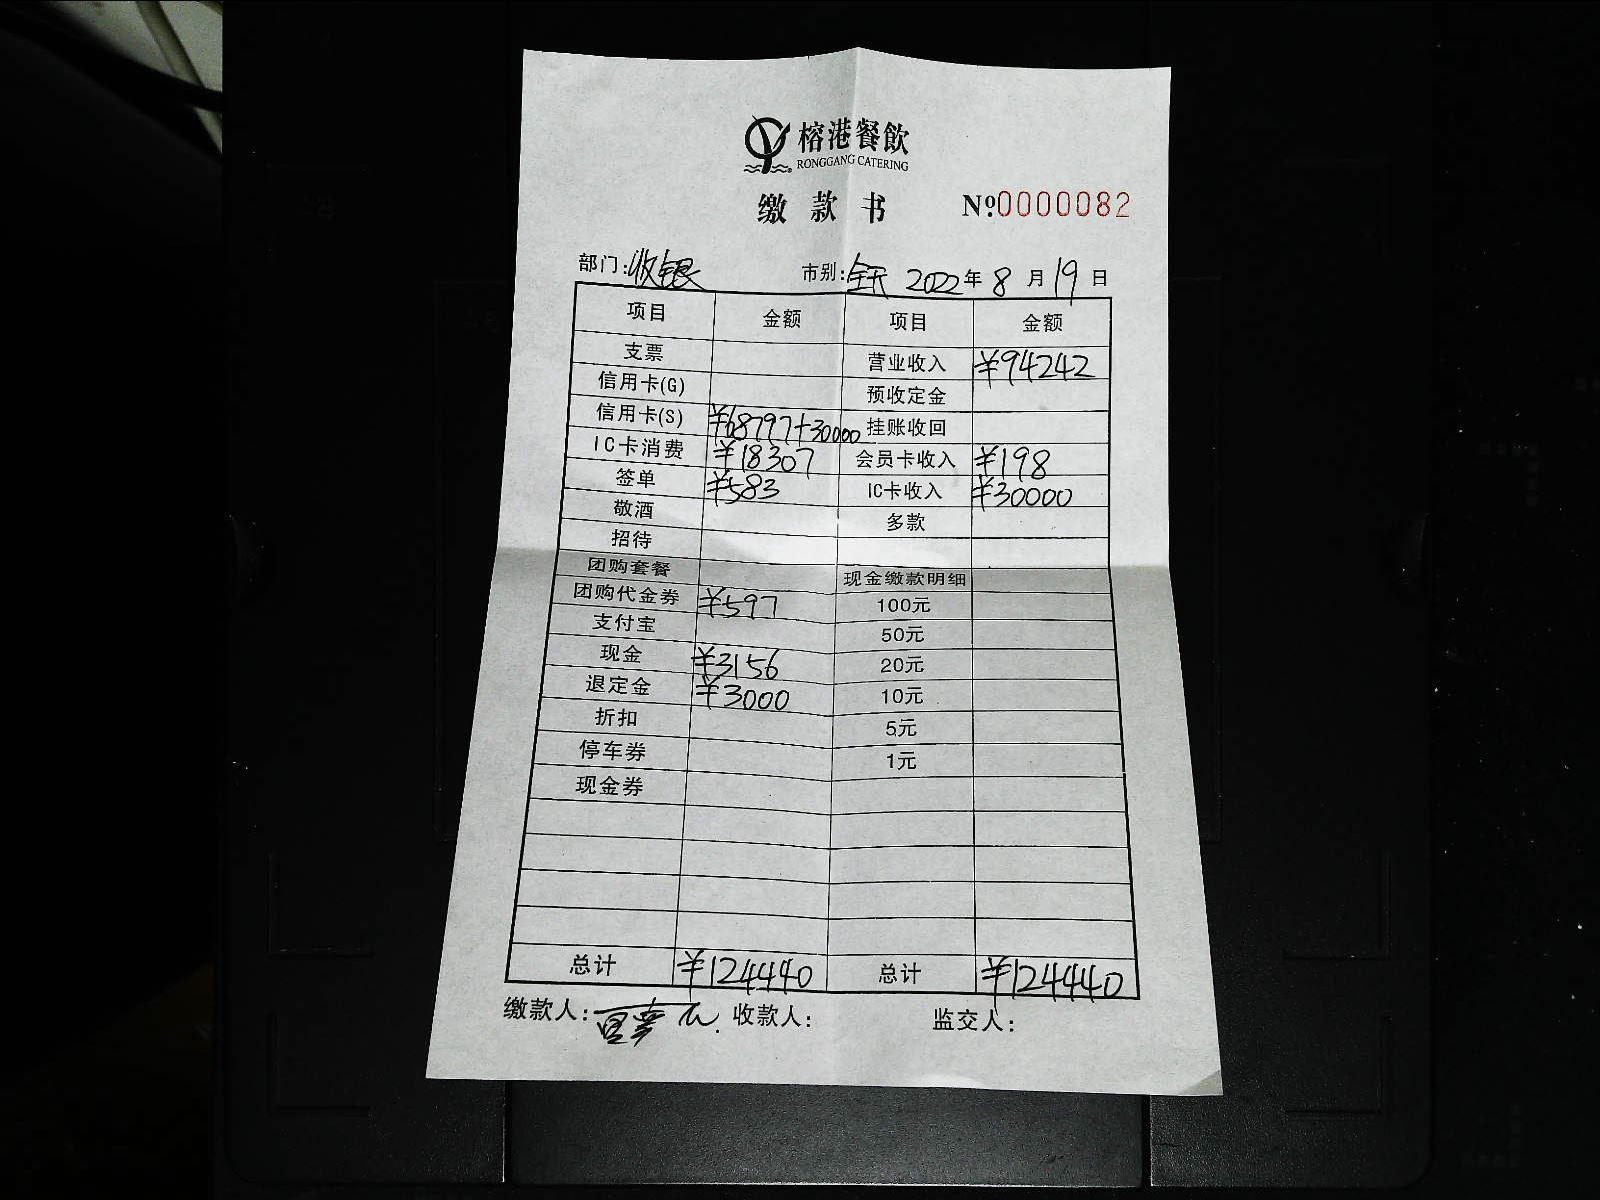 榕港餐飲
RONGGANG CATERING
缴款书 №0000082
部门:收银 市别:全天 2022年8月19日
项目 金额 项目 金额
支票 营业收入 ¥94242
信用卡(G) 预收定金
信用卡(S) ¥68797+30000 挂账收回
IC卡消费 ¥18307 会员卡收入 ¥198
签单 ¥583 IC卡收入 ¥30000
敬酒 多款
招待
团购套餐 现金缴款明细
团购代金券 ¥597 100元
支付宝 50元
现金 ¥3156 20元
退定金 ¥3000 10元
折扣 5元
停车券 1元
现金券
总计 ¥124440 总计 ¥124440
缴款人: 收款人: 监交人: